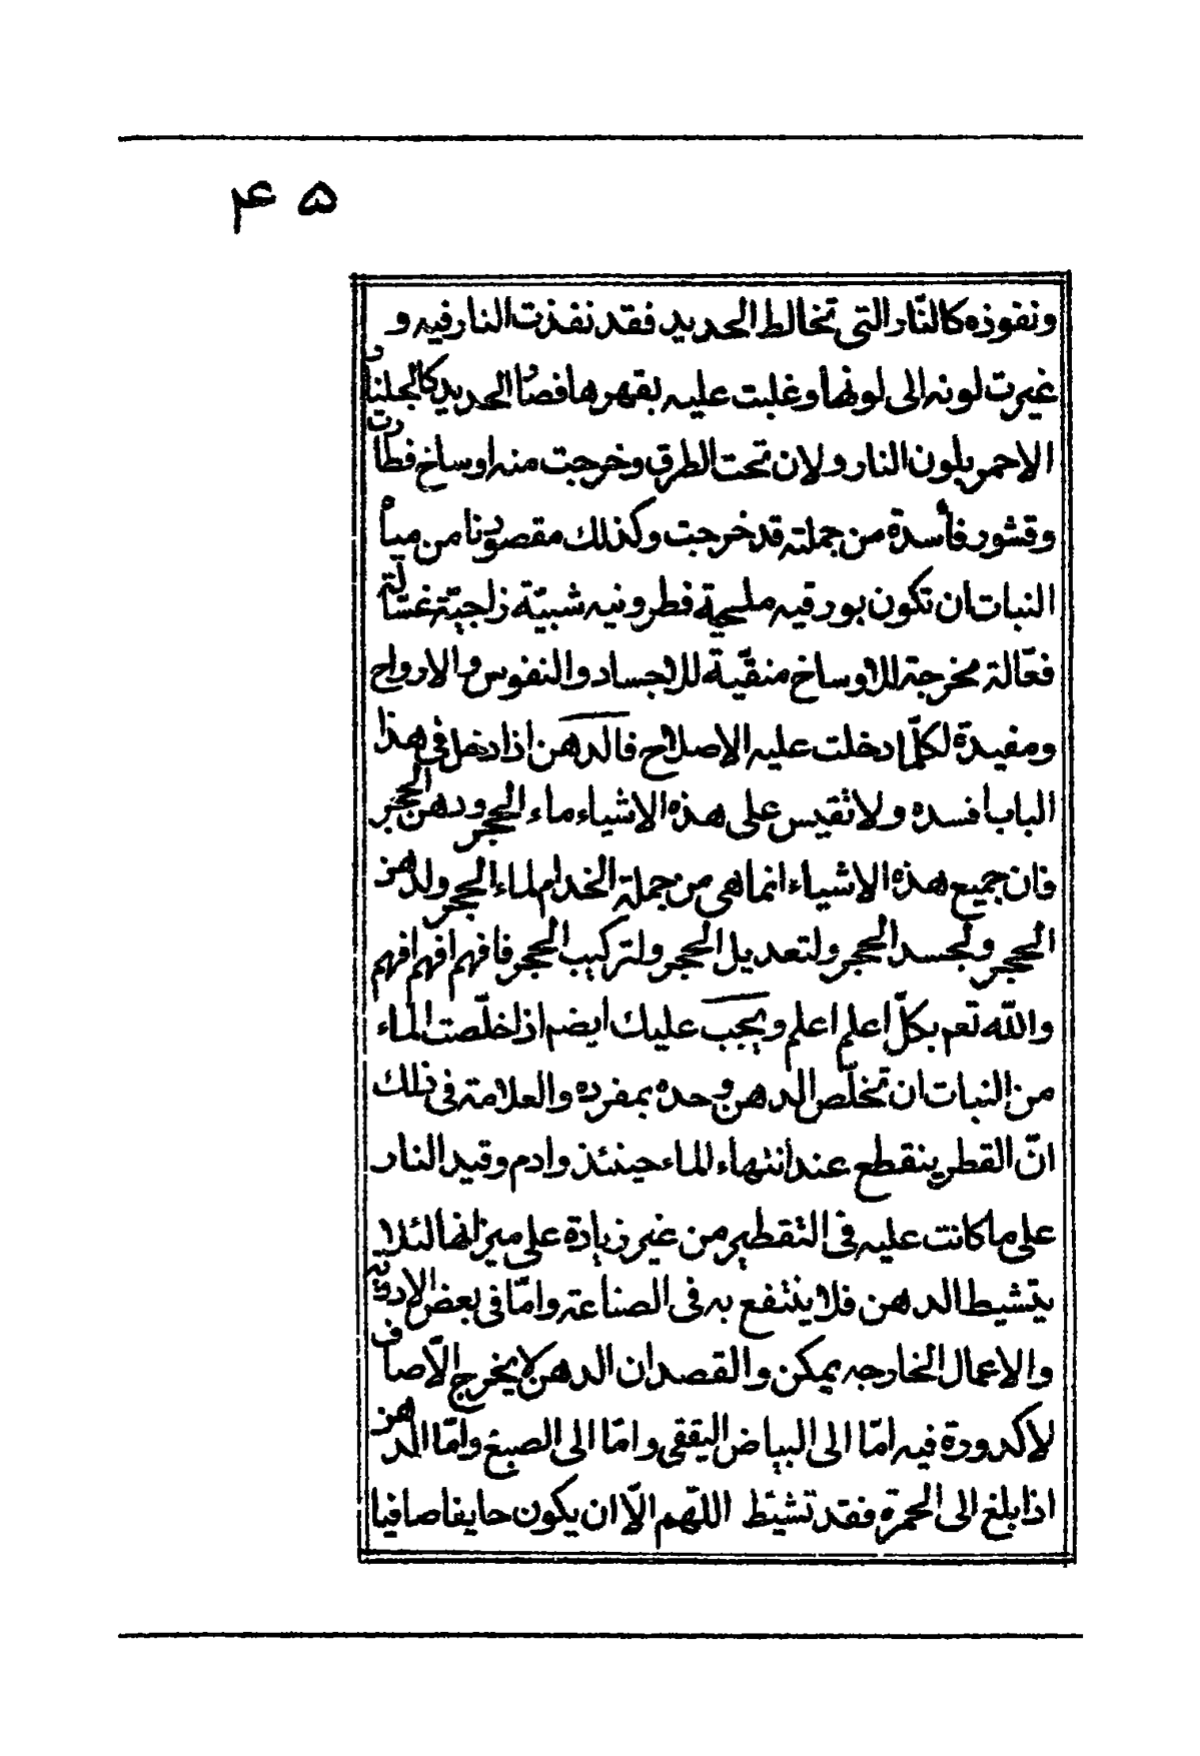 ۴۵
ونفوذه كالنّار التى تخالط الحديد فقد نفذت النار فيه و
غيرت لونه الى لونها وغلبت عليه بقهرها فصار الحديد كالجلنار
الاحمر بلون النار ولان تحت الطرق وخرجت منه اوساخ فطارت
وقشور فأسدة من جملته قد خرجت وكذلك مقصودنا من مياه
النبات ان تكون بورقيه مليحية فطرونيه شبيّة زاجيّة غسّالة
فعّالة مخرجة للاوساخ منقّية للاجساد والنفوس والارواح
ومفيدة لكلّما دخلت عليه الاصلاح فالدهن اذا دخل فى هذا
الباب افسده ولا تقيس على هذه الاشياء ماء الحجر ودهن الحجر
فان جميع هذه الاشياء انما هى من جملة الخدام لماء الحجر ولدهن
الحجر ولجسد الحجر ولتعديل الحجر ولتركيب الحجر فافهم افهم افهم
والله تعم بكلّ اعلم اعلم ويجب عليك ايضم اذا خلّصت الماء
من النبات ان تخلّص الدهن وحده بمفرده والعلامة فى ذلك
انّ القطر ينقطع عند انتهاء الماء حينئذ وادم وقيد النار
على ما كانت عليه فى التقطير من غير زيادة على ميزانها لئلا
يتشيط الدهن فلا ينتفع به فى الصناعة وامّا فى بعض الادوية
والاعمال الخارجه يمكن والقصد ان الدهن لا يخرج الّا صاف
لا كدورة فيه امّا الى البياض اليققى وامّا الى الصبغ وامّا الدهن
اذا بلغ الى الحمرة فقد تشيّط اللهّم الّا ان يكون صافيا